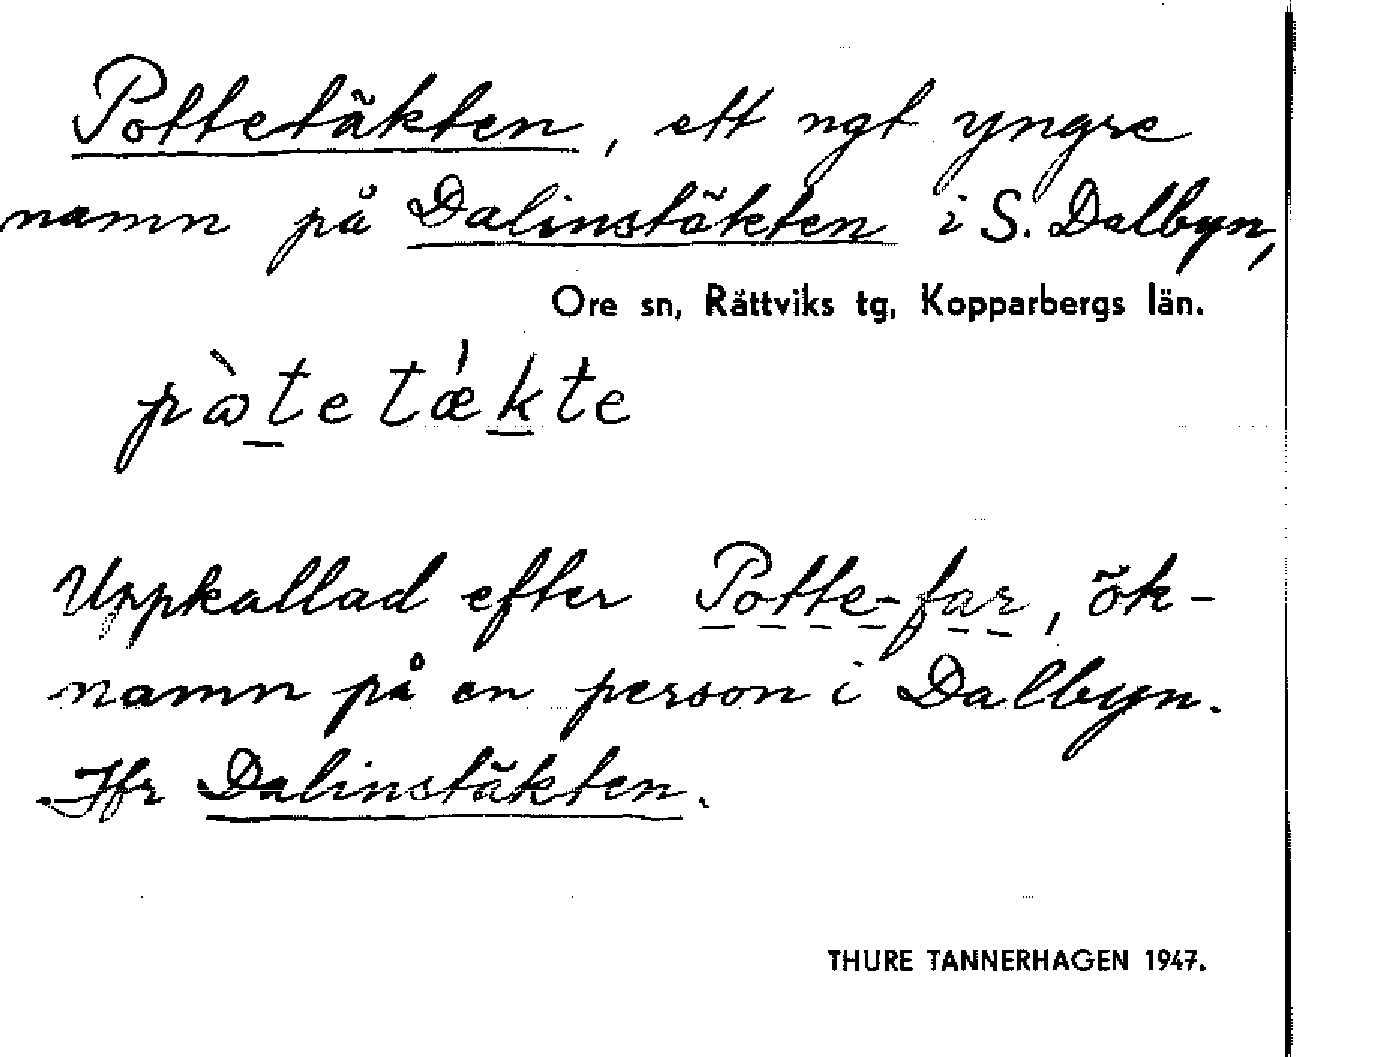 Pottetäkten, ett ngt yngre
namn på Dalinstäkten i S. Dalbyn,
Ore sn, Rättviks tg, Kopparbergs län.
pàtetǽkte
Uppkallad efter Potte-far, ök-
namn på en person i Dalbyn.
Jfr Dalinstäkten.
THURE TANNERHAGEN 1947.